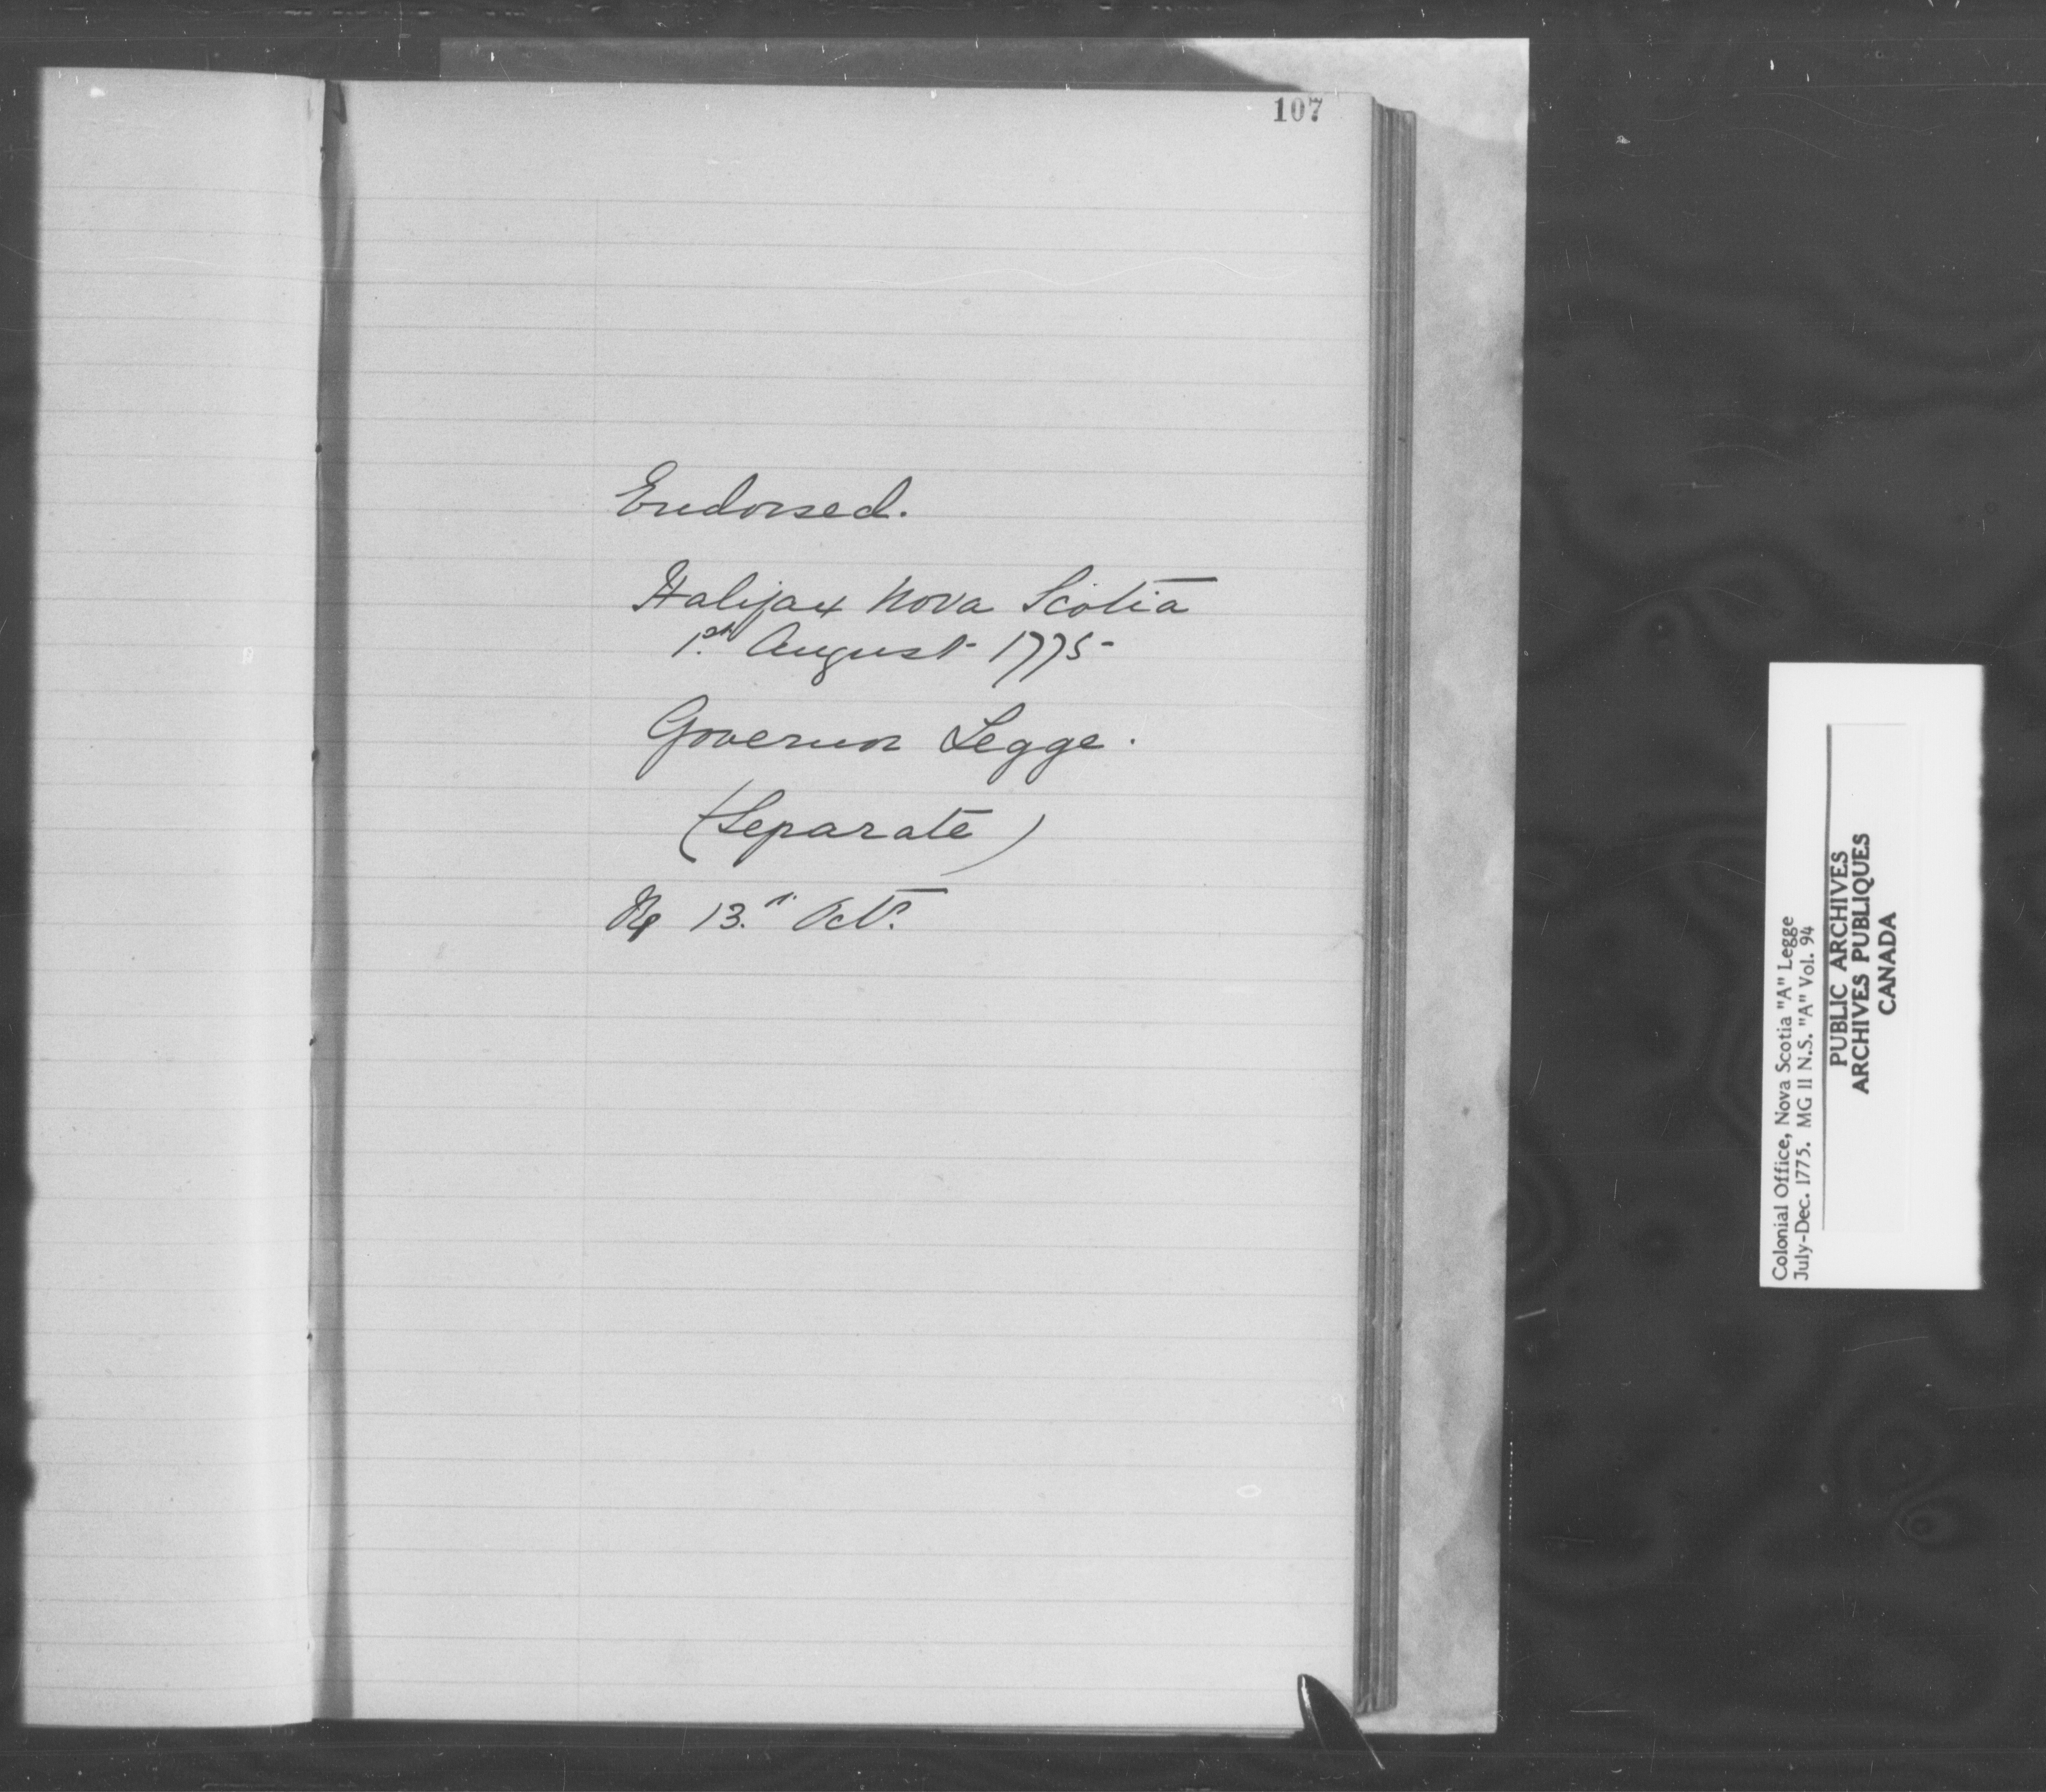 107
Endorsed.
Halifax Nova Scotia
1st August 1775-
Governor Legge.
(Separate)
13.th Octr.
Colonial Office, Nova Scotia "A" Legge
July-Dec. 1775. MG 11 N.S. "A" Vol. 94
PUBLIC ARCHIVES
ARCHIVES PUBLIQUES
CANADA